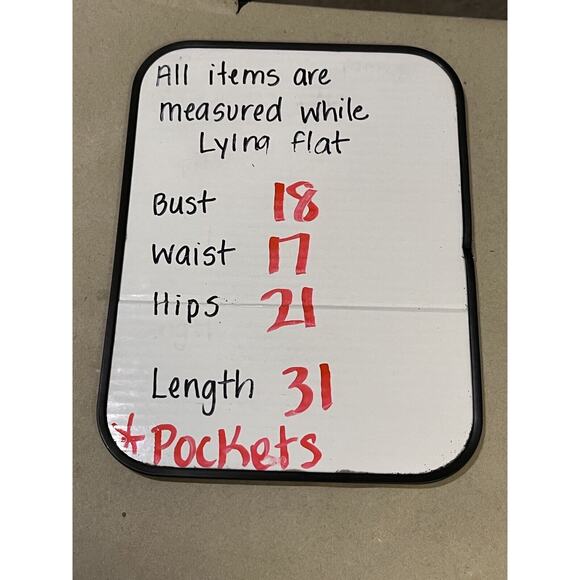 All items are
measured while
Lying flat
Bust 18
Waist 17
Hips 21
Length 31
* Pockets